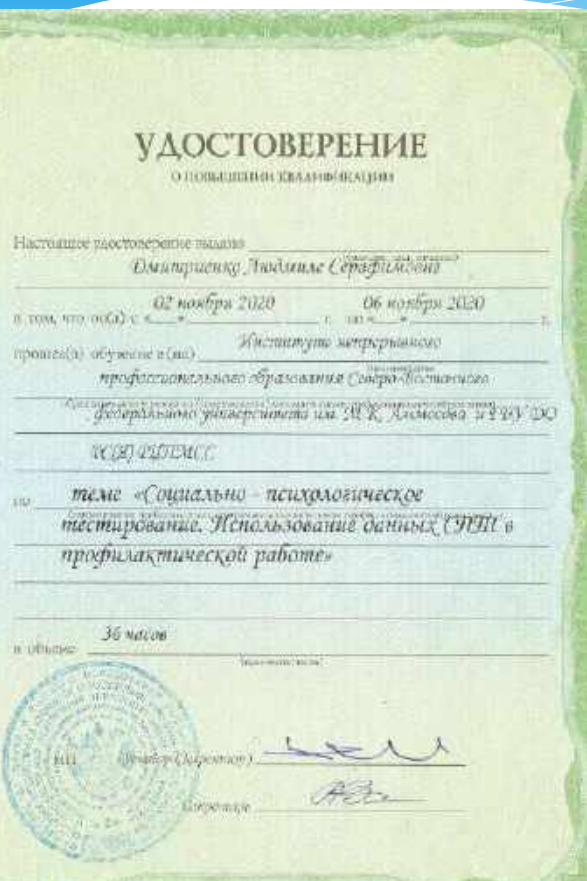 УДОСТОВЕРЕНИЕ
О ПОВЫШЕНИИ КВАЛИФИКАЦИИ
Настоящее удостоверение выдано
Дмитриенко Людмиле Серафимовне
02 ноября 2020 06 ноября 2020
в том, что он(а) с «__» г. по «__» г.
прошел(а) обучение в (на) Институте непрерывного
профессионального образования Северо-Восточного
федерального университета им. М.К. Аммосова и ГБУ ДО
РС(Я) РЦПМСС
по теме «Социально - психологическое
тестирование. Использование данных СПТ в
профилактической работе»
в объеме 36 часов
МП Ректор (директор)
Секретарь